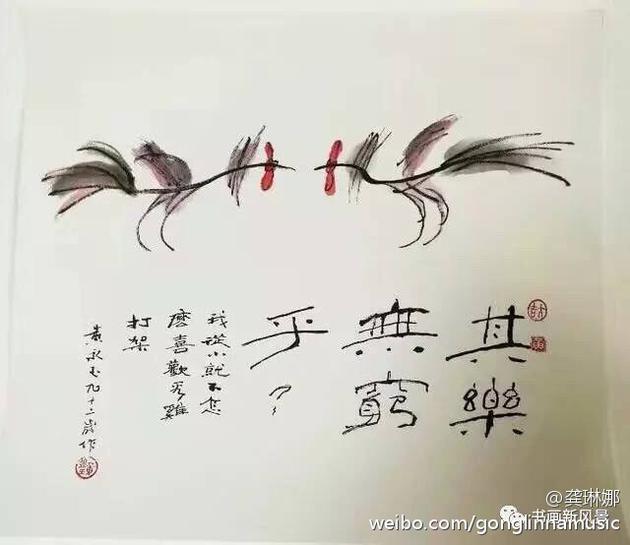 其樂
無窮
乎??
我從小就不怎
麽喜歡看雞
打架
黄永玉九十二歲作
@龚琳娜
书画新风景
weibo.com/gonglinnamusic